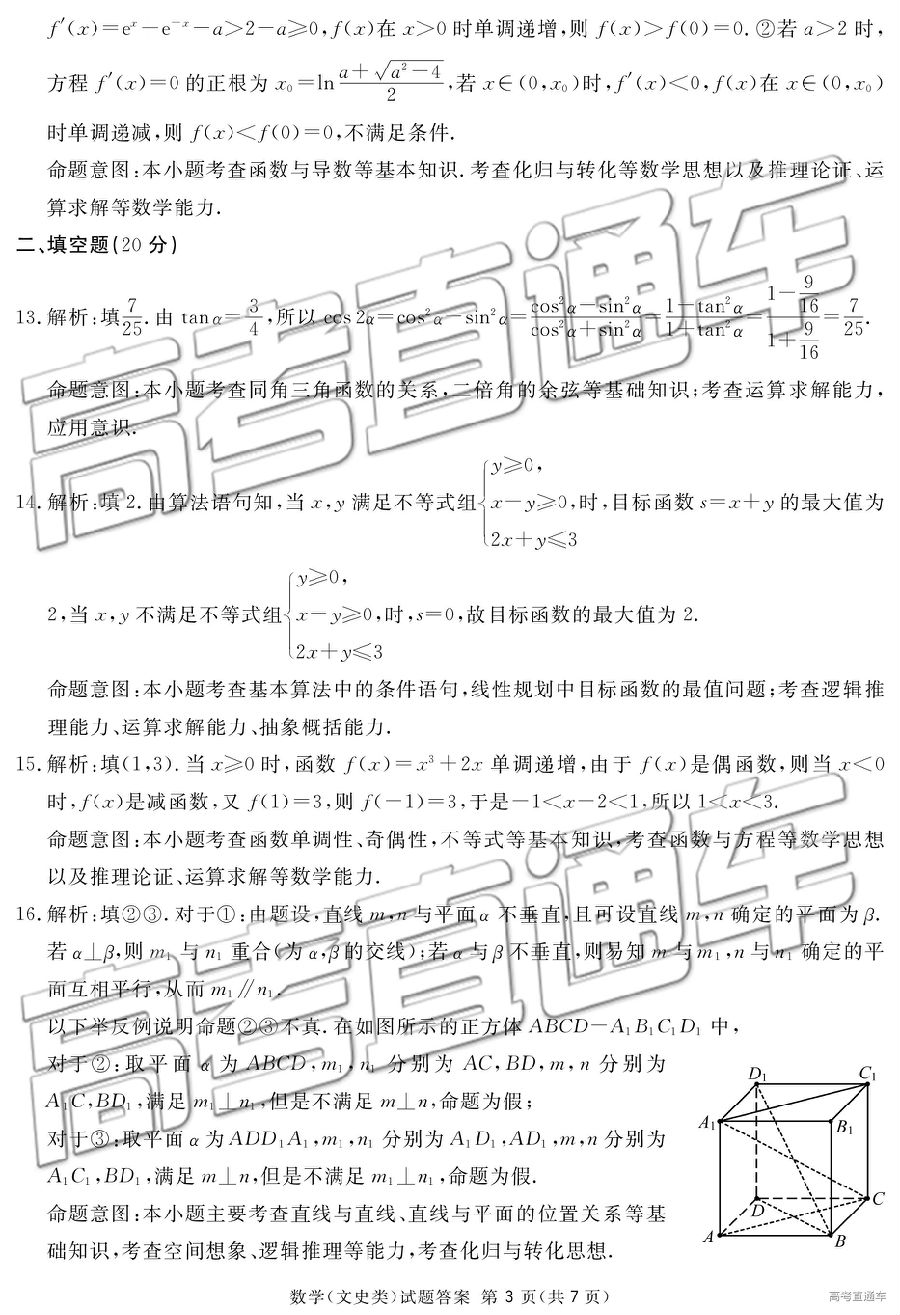 f′(x)=eˣ−e⁻ˣ−a>2−a≥0,f(x)在 x>0 时单调递增,则 f(x)>f(0)=0.②若 a>2 时,
方程 f′(x)=0 的正根为 x₀=ln (a+√(a²−4))/2,若 x∈(0,x₀)时,f′(x)<0,f(x)在 x∈(0,x₀)
时单调递减,则 f(x)<f(0)=0,不满足条件.
命题意图:本小题考查函数与导数等基本知识.考查化归与转化等数学思想以及推理论证、运
算求解等数学能力.
二、填空题(20 分)
13.解析:填7/25.由 tanα=3/4,所以 cos2α=cos²α−sin²α=(cos²α−sin²α)/(cos²α+sin²α)=(1−tan²α)/(1+tan²α)=(1−9/16)/(1+9/16)=7/25.
命题意图:本小题考查同角三角函数的关系,二倍角的余弦等基础知识;考查运算求解能力,
应用意识.
14.解析:填 2.由算法语句知,当 x,y 满足不等式组{y≥0, x−y≥0, 2x+y≤3 时,目标函数 s=x+y 的最大值为
2,当 x,y 不满足不等式组{y≥0, x−y≥0, 2x+y≤3 时,s=0,故目标函数的最大值为 2.
命题意图:本小题考查基本算法中的条件语句,线性规划中目标函数的最值问题;考查逻辑推
理能力、运算求解能力、抽象概括能力.
15.解析:填(1,3).当 x≥0 时,函数 f(x)=x³+2x 单调递增,由于 f(x)是偶函数,则当 x<0
时,f(x)是减函数,又 f(1)=3,则 f(−1)=3,于是−1<x−2<1,所以 1<x<3.
命题意图:本小题考查函数单调性、奇偶性,不等式等基本知识,考查函数与方程等数学思想
以及推理论证、运算求解等数学能力.
16.解析:填②③.对于①:由题设,直线 m,n 与平面 α 不垂直,且可设直线 m,n 确定的平面为 β.
若 α⊥β,则 m₁ 与 n₁ 重合(为 α,β的交线);若 α 与 β 不垂直,则易知 m 与 m₁,n 与 n₁ 确定的平
面互相平行,从而 m₁∥n₁.
以下举反例说明命题②③不真.在如图所示的正方体 ABCD−A₁B₁C₁D₁ 中,
对于②:取平面 α 为 ABCD,m₁,n₁ 分别为 AC,BD,m,n 分别为
A₁C,BD₁,满足 m₁⊥n₁,但是不满足 m⊥n,命题为假;
对于③:取平面 α 为 ADD₁A₁,m₁,n₁ 分别为 A₁D₁,AD₁,m,n 分别为
A₁C₁,BD₁,满足 m⊥n,但是不满足 m₁⊥n₁,命题为假.
命题意图:本小题主要考查直线与直线、直线与平面的位置关系等基
础知识,考查空间想象、逻辑推理等能力,考查化归与转化思想.
D₁ C₁
A₁ B₁
D C
A B
数学(文史类)试题答案 第 3 页(共 7 页)
高考直通车
高考直通车
高考直通车